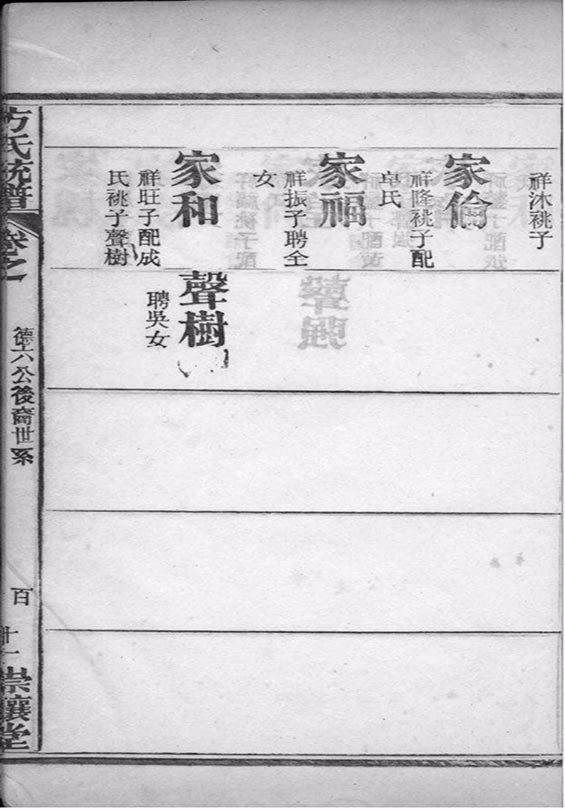 祥沐祧子
家倫
祥隆祧子配
皁氏
家福
祥振子聘仝
女
家和
祥旺子配成
氏祧子聲樹
聲樹
聘吳女
方氏統譜
卷之一
德六公後裔世系
百
十一
崇讓堂